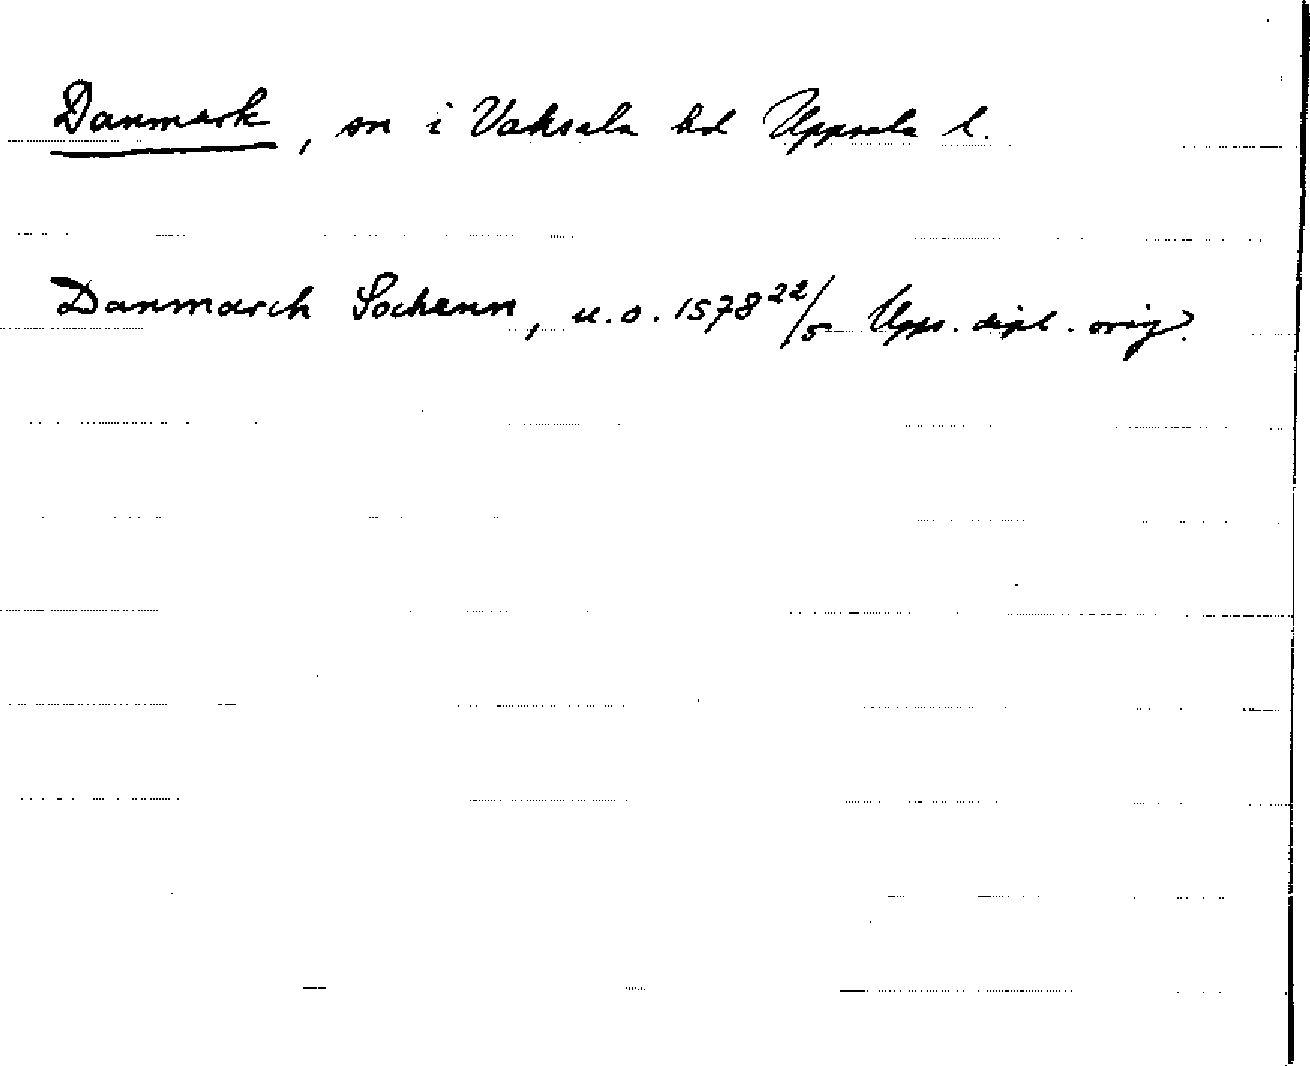 Danmark, sn i Vaksala hd Uppsala l.
Danmarch Sochenn, u.o. 1578 22/5 Upps. dipl. orig.